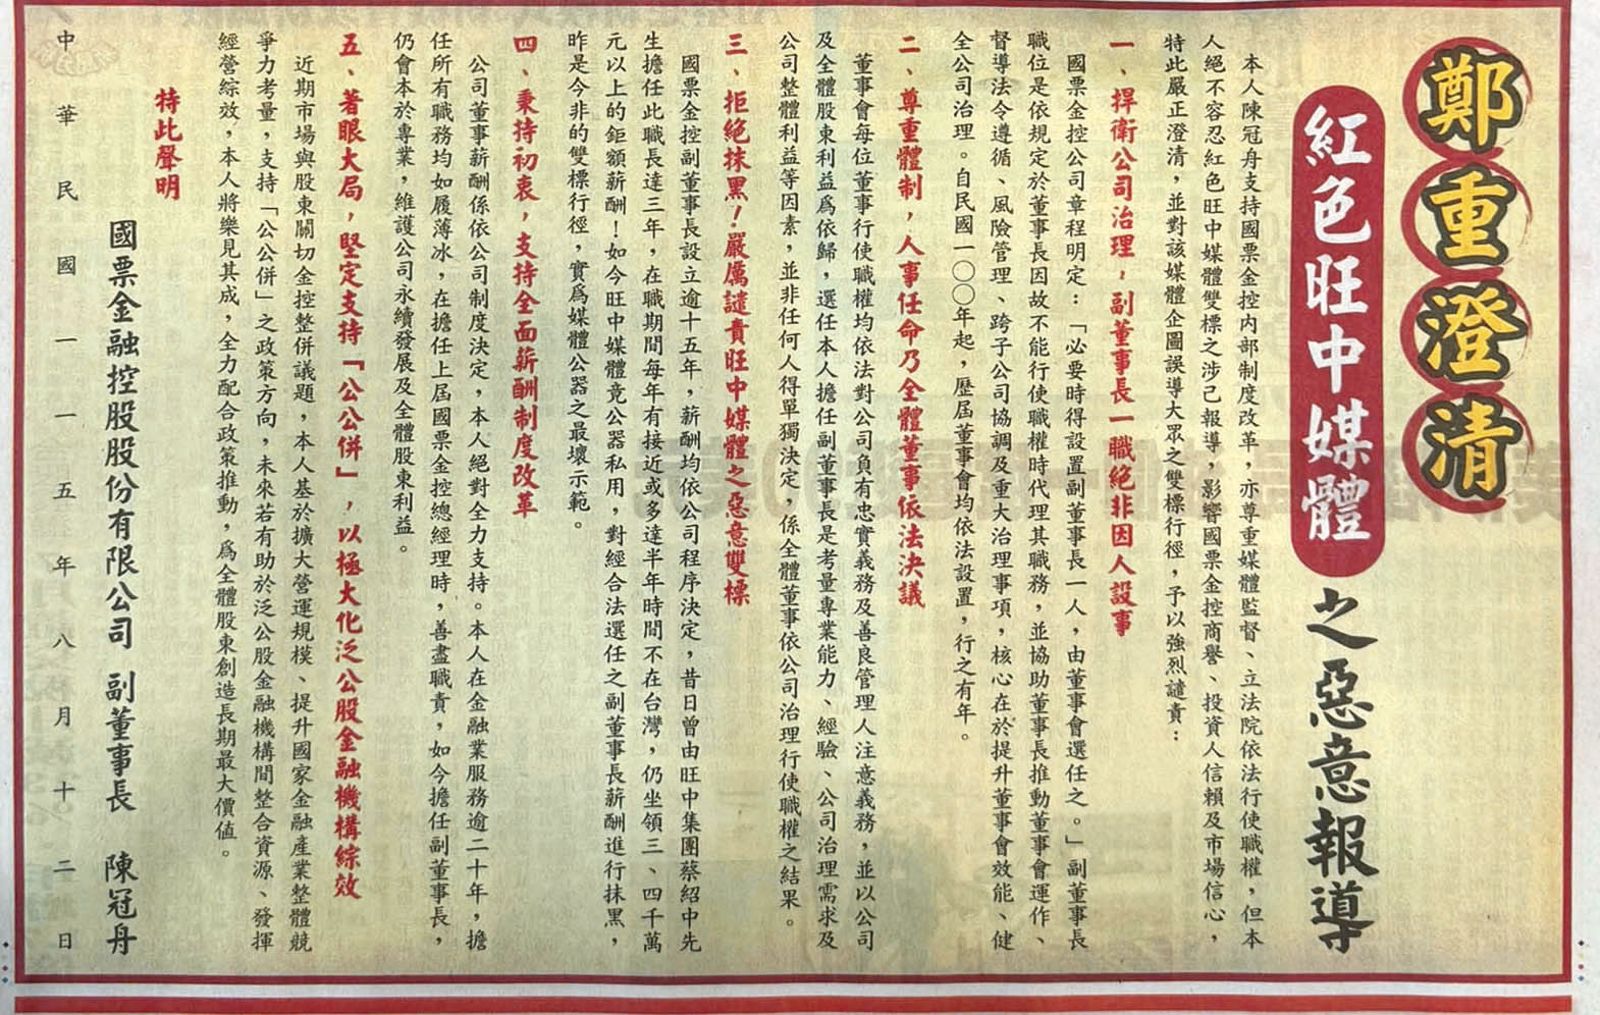 鄭重澄清
紅色旺中媒體之惡意報導
本人陳冠舟支持國票金控內部制度改革，亦尊重媒體監督、立法院依法行使職權，但本
人絕不容忍紅色旺中媒體雙標之涉己報導，影響國票金控商譽、投資人信賴及市場信心，
特此嚴正澄清，並對該媒體企圖誤導大眾之雙標行徑，予以強烈譴責：
一、捍衛公司治理，副董事長一職絕非因人設事
國票金控公司章程明定：「必要時得設置副董事長一人，由董事會選任之。」副董事長
職位是依規定於董事長因故不能行使職權時代理其職務，並協助董事長推動董事會運作、
督導法令遵循、風險管理、跨子公司協調及重大治理事項，核心在於提升董事會效能、健
全公司治理。自民國一〇〇年起，歷屆董事會均依法設置，行之有年。
二、尊重體制，人事任命乃全體董事依法決議
董事會每位董事行使職權均依法對公司負有忠實義務及善良管理人注意義務，並以公司
及全體股東利益為依歸，選任本人擔任副董事長是考量專業能力、經驗、公司治理需求及
公司整體利益等因素，並非任何人得單獨決定，係全體董事依公司治理行使職權之結果。
三、拒絕抹黑！嚴厲譴責旺中媒體之惡意雙標
國票金控副董事長設立逾十五年，薪酬均依公司程序決定，昔日曾由旺中集團蔡紹中先
生擔任此職長達三年，在職期間每年有接近或多達半年時間不在台灣，仍坐領三、四千萬
元以上的鉅額薪酬！如今旺中媒體竟公器私用，對經合法選任之副董事長薪酬進行抹黑，
昨是今非的雙標行徑，實為媒體公器之最壞示範。
四、秉持初衷，支持全面薪酬制度改革
公司董事薪酬係依公司制度決定，本人絕對全力支持。本人在金融業服務逾二十年，擔
任所有職務均如履薄冰，在擔任上屆國票金控總經理時，善盡職責，如今擔任副董事長，
仍會本於專業，維護公司永續發展及全體股東利益。
五、著眼大局，堅定支持「公公併」，以極大化泛公股金融機構綜效
近期市場與股東關切金控整併議題，本人基於擴大營運規模、提升國家金融產業整體競
爭力考量，支持「公公併」之政策方向，未來若有助於泛公股金融機構間整合資源、發揮
經營綜效，本人將樂見其成，全力配合政策推動，為全體股東創造長期最大價值。
特此聲明
國票金融控股股份有限公司 副董事長 陳冠舟
中華民國一一五年八月十二日